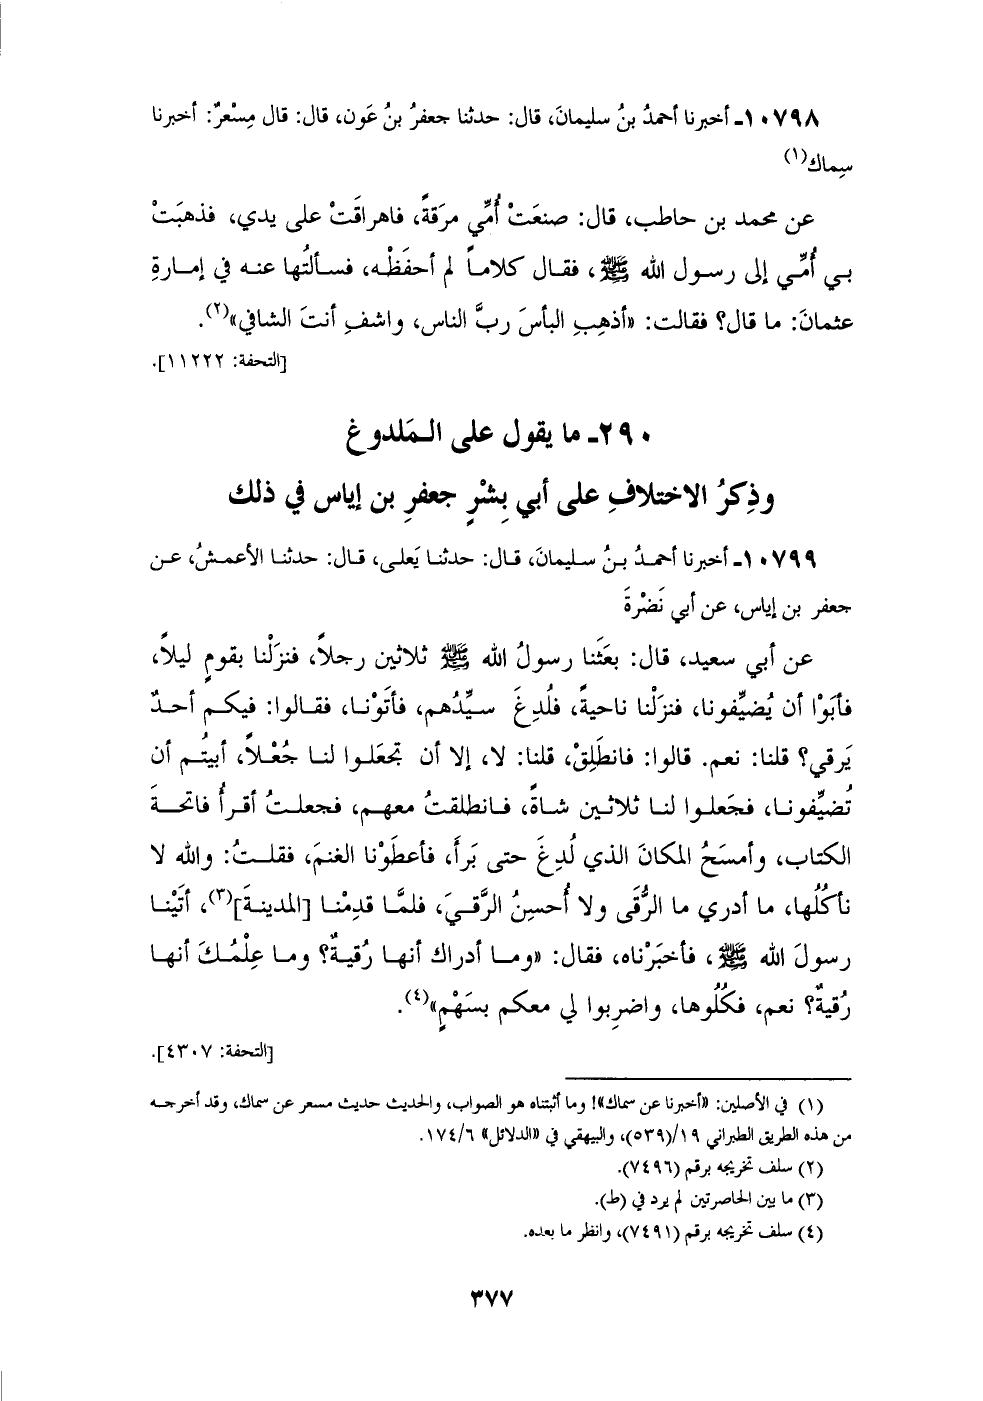 ١٠٧٩٨ـ أخبرنا أحمدُ بنُ سليمانَ، قال: حدثنا جعفرُ بنُ عَون، قال: قال مِسْعرٌ: أخبرنا
سِماك(١)
عن محمد بن حاطب، قال: صنعَتْ أُمِّي مرَقةً، فاهراقَتْ على يدي، فذهبَتْ
بي أُمِّي إلى رسول الله ﷺ، فقال كلاماً لم أحفَظْه، فسألتُها عنه في إمارةِ
عثمانَ: ما قال؟ فقالت: «أذهِبِ البأسَ ربَّ الناس، واشفِ أنتَ الشافي»(٢).
[التحفة: ١١٢٢٢].
٢٩٠ـ ما يقول على المَلدوغ
وذِكرُ الاختلافِ على أبي بِشْرٍ جعفرِ بن إياس في ذلك
١٠٧٩٩ـ أخبرنا أحمدُ بنُ سليمانَ، قال: حدثنا يَعلى، قال: حدثنا الأعمشُ، عن
جعفر بن إياس، عن أبي نَضْرةَ
عن أبي سعيد، قال: بعَثَنا رسولُ الله ﷺ ثلاثين رجلاً، فنزَلْنا بقومٍ ليلاً،
فأبَوْا أن يُضيِّفونا، فنزَلْنا ناحيةً، فلُدِغَ سيِّدُهم، فأتَوْنا، فقالوا: فيكم أحدٌ
يَرقي؟ قلنا: نعم. قالوا: فانطَلِقْ، قلنا: لا، إلا أن تجعَلوا لنا جُعْلاً، أبيتُم أن
تُضيِّفونا، فجَعلوا لنا ثلاثين شاةً، فانطلقتُ معهم، فجعلتُ أقرأُ فاتحةَ
الكتاب، وأمسَحُ المكانَ الذي لُدِغَ حتى بَرأَ، فأعطَوْنا الغنمَ، فقلتُ: والله لا
نأكُلُها، ما أدري ما الرُّقَى ولا أُحسِنُ الرَّقيَ، فلمَّا قدِمْنا [المدينةَ](٣)، أتَيْنا
رسولَ الله ﷺ، فأخبَرْناه، فقال: «وما أدراك أنها رُقيةٌ؟ وما عِلْمُكَ أنها
رُقيةٌ؟ نعم، فكُلُوها، واضرِبوا لي معكم بسَهْمٍ»(٤).
[التحفة: ٤٣٠٧].
(١) في الأصلين: «أخبرنا عن سماك»! وما أثبتناه هو الصواب، والحديث حديث مسعر عن سماك، وقد أخرجه
من هذه الطريق الطبراني ١٩/(٥٣٩)، والبيهقي في «الدلائل» ١٧٤/٦.
(٢) سلف تخريجه برقم (٧٤٩٦).
(٣) ما بين الحاصرتين لم يرد في (ط).
(٤) سلف تخريجه برقم (٧٤٩١)، وانظر ما بعده.
٣٧٧